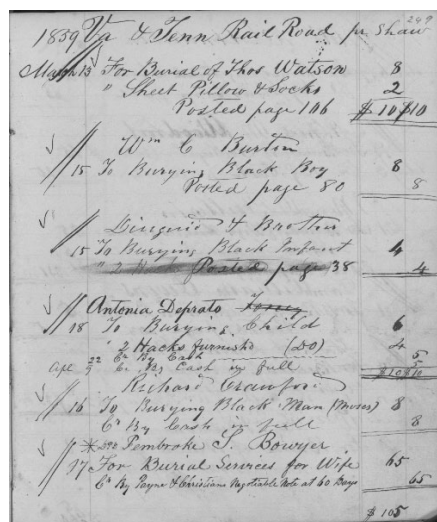 249
1859 Va & Tenn Rail Road pr Shaw
March 13 For Burial of Thos Watson 8
" Sheet Pillow & Socks 2
Posted page 106 $10 $10
Wm C Burton
15 To Burying Black Boy 8
Posted page 80 8
Diuguid & Brother
15 To Burying Black Infant 4
Posted page 38 4
Antonia Deprato
18 To Burying Child 6
" 2 Hacks furnishd (DO) 4
22 Cr By Cash 5
Apl 9 Cr By Cash in full 5
$10 $10
Richard Crawford
16 To Burying Black Man (Moses) 8
Cr By Cash in full 8
Pembroke S. Bowyer
17 For Burial Services for Wife 65
Cr By Payne & Christians Negotiable Note at 60 Days 65
$105